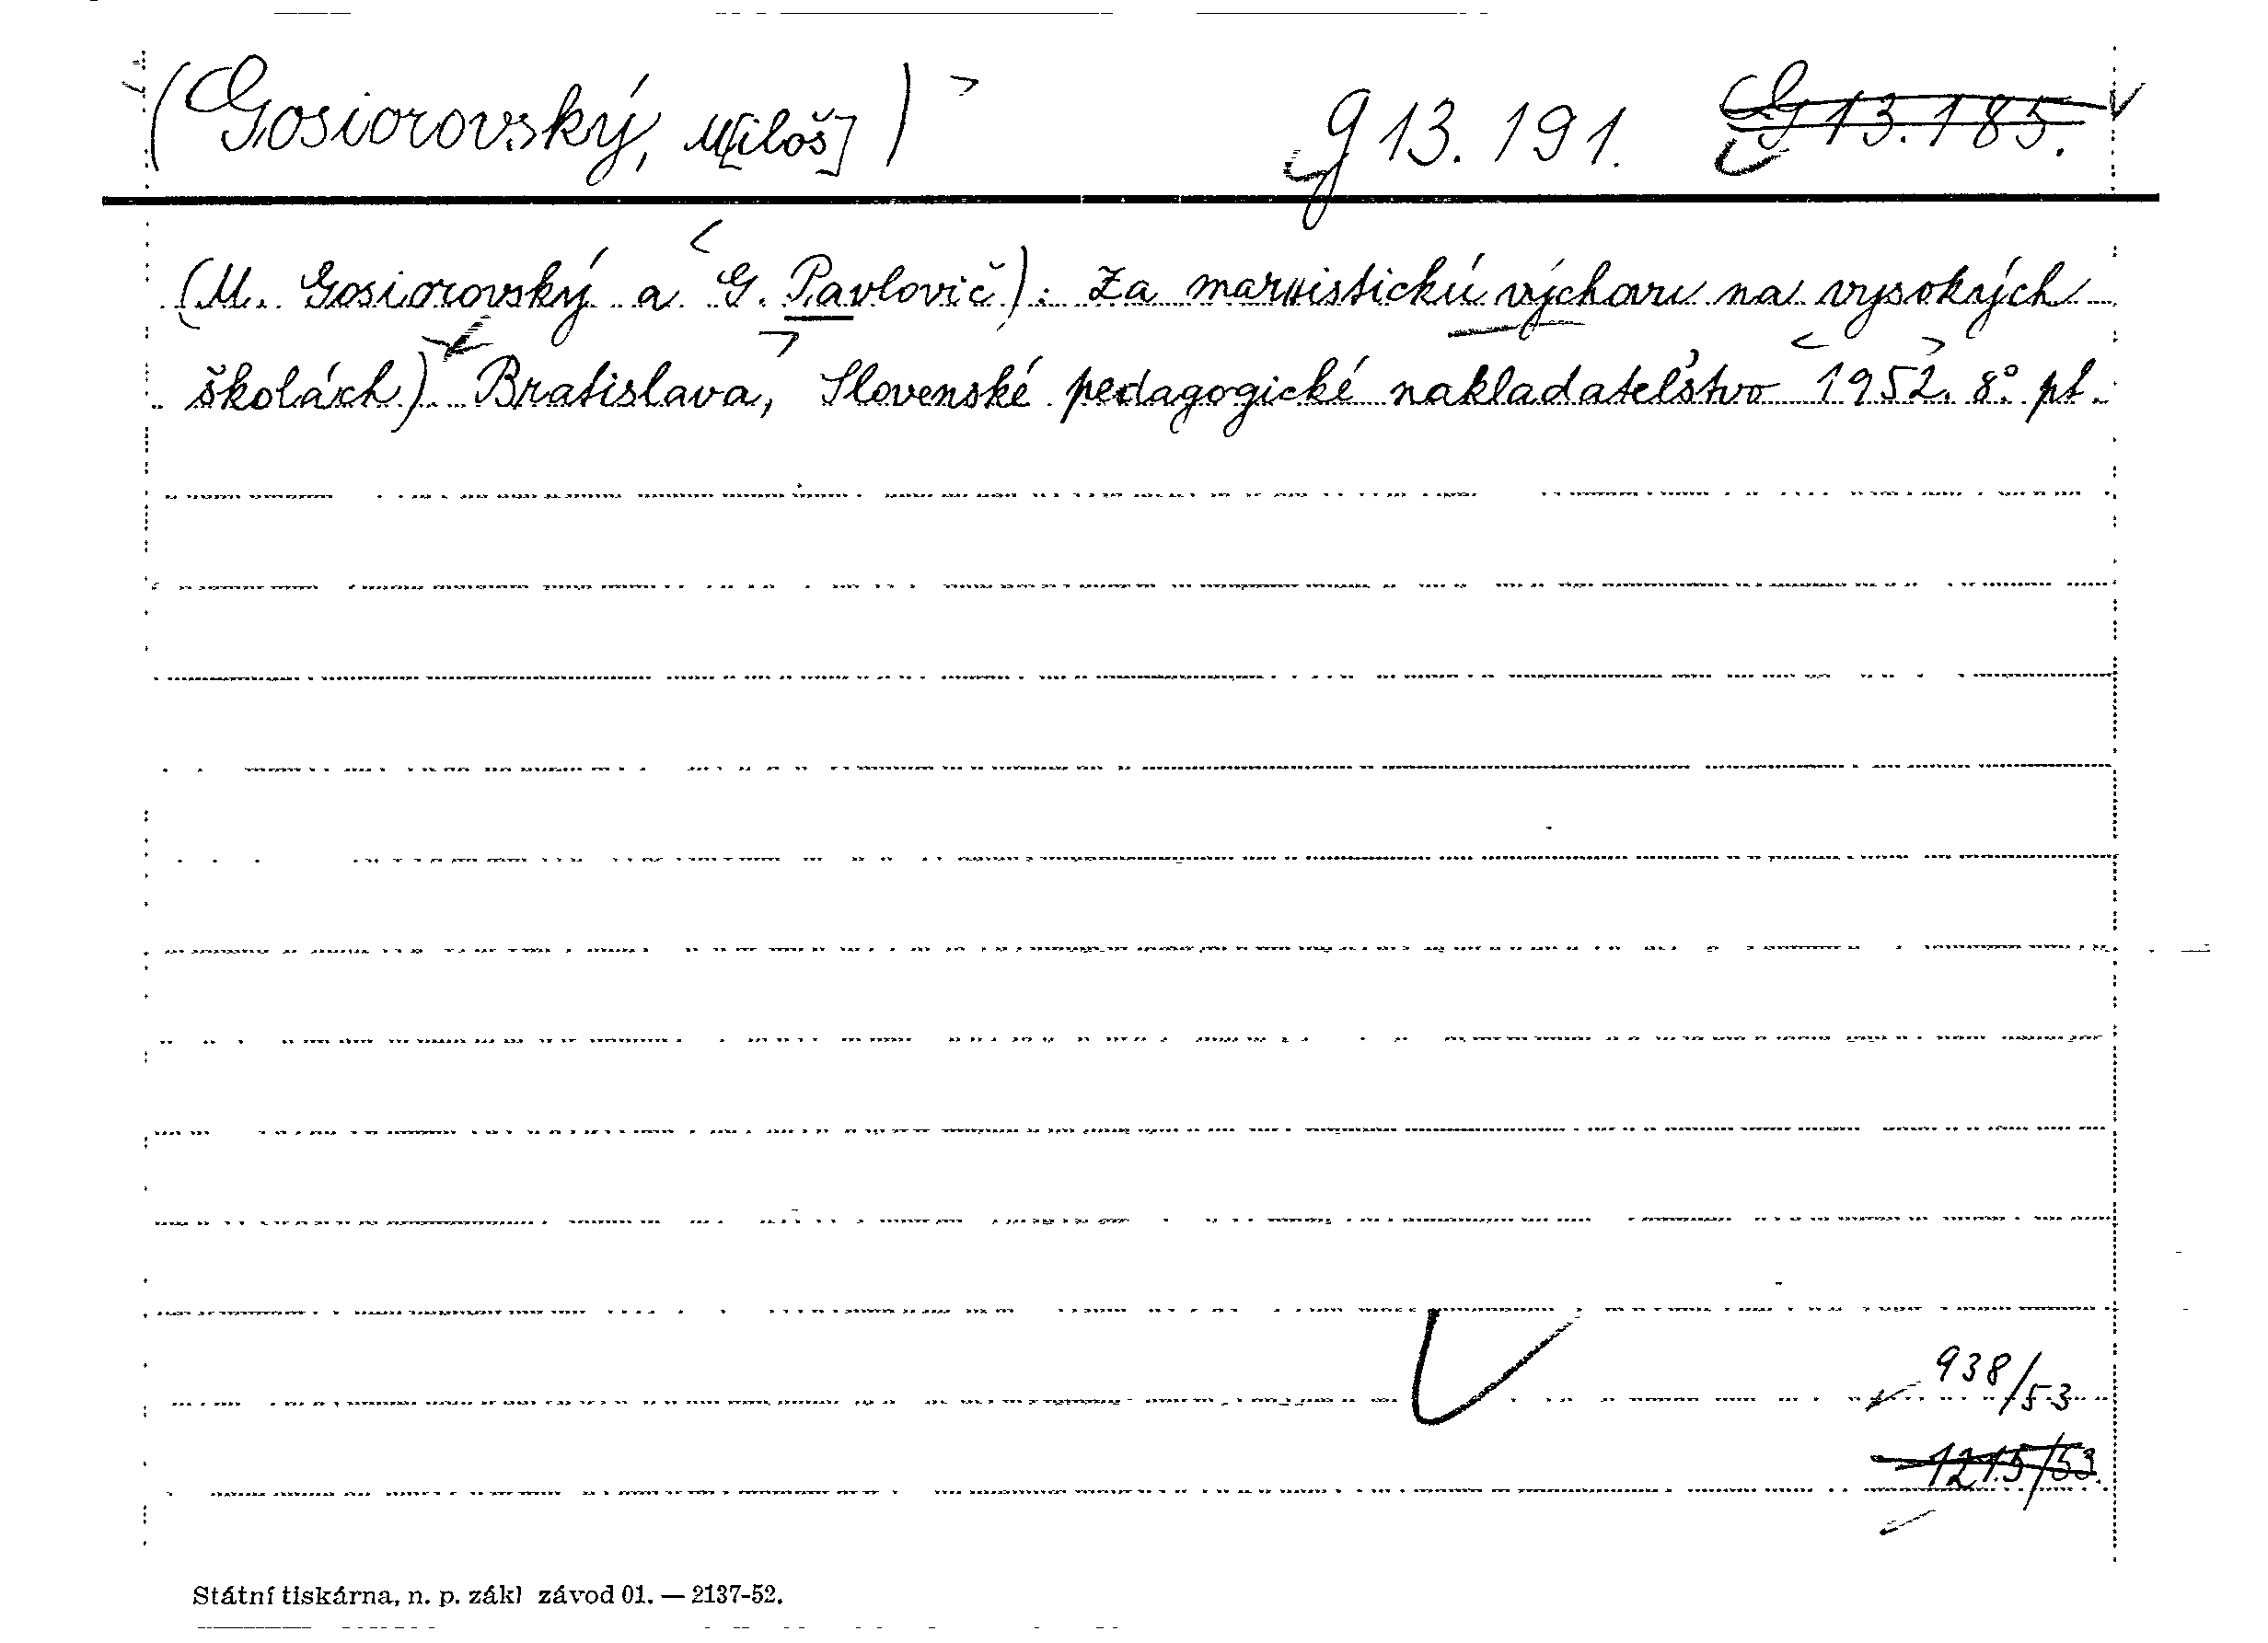 (Gosiorovský, M[iloš]) g 13.191. G 13.185.
(M. Gosiorovský a G. Pavlovič): Za marxistickú výchovu na vysokých
školách) Bratislava, Slovenské pedagogické nakladateľstvo 1952. 8° pt.
938/53
1215/53.
Státní tiskárna, n. p. zákl závod 01. — 2137-52.